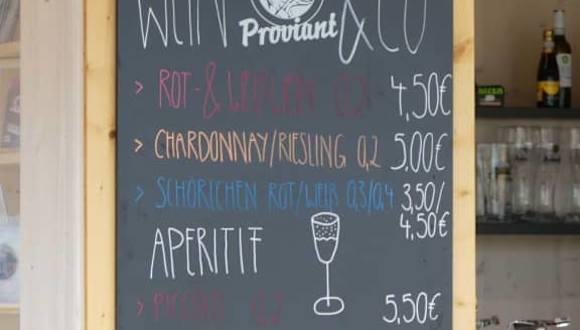 WEIN & CO
Proviant
> ROT- & WEIßWEIN 0,2 4,50€
> CHARDONNAY/RIESLING 0,2 5,00€
> SCHÖRLCHEN ROT/WEIß 0,3/0,4 3,50/
4,50€
APERITIF
> PICCOLO 0,2 5,50€